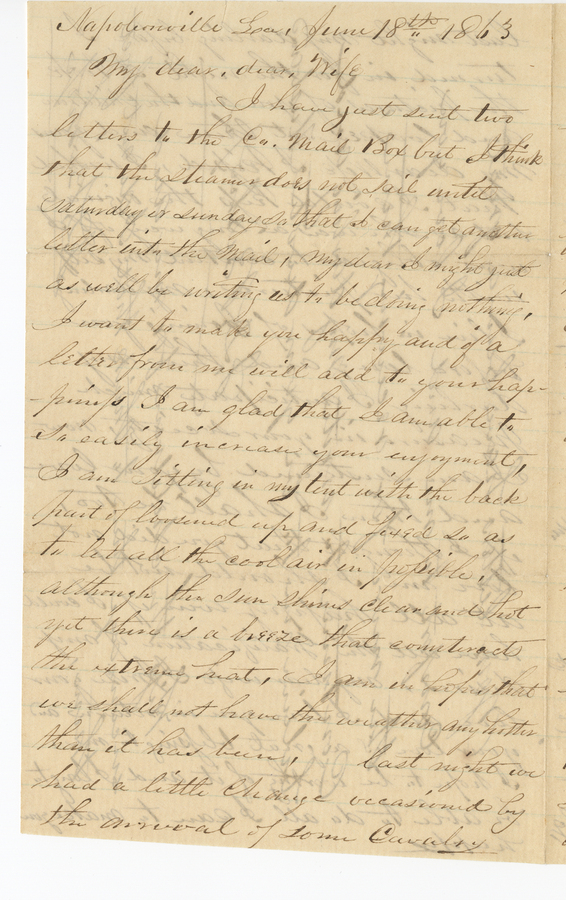 Napoleonville Loa, June 18th 1863
My dear, dear, Wife
I have just sent two
letters to the Co. Mail Box but I think
that the steamer does not sail until
Saturday or Sunday so that I can get another
letter into the Mail, My dear I might just
as well be writing as to be doing nothing,
I want to make you happy and if a
letter from me will add to your hap-
-piness I am glad that I am able to
so easily increase your enjoyment,
I am sitting in my tent with the back
part of loosened up and fixed so as
to let all the cool air in possible,
although the sun shines clear and hot
yet there is a breeze that counteract
the extreme heat, I am in hopes that
we shall not have the weather any hotter
than it has been, Last night we
had a little change occasioned by
the arrival of some Cavalry